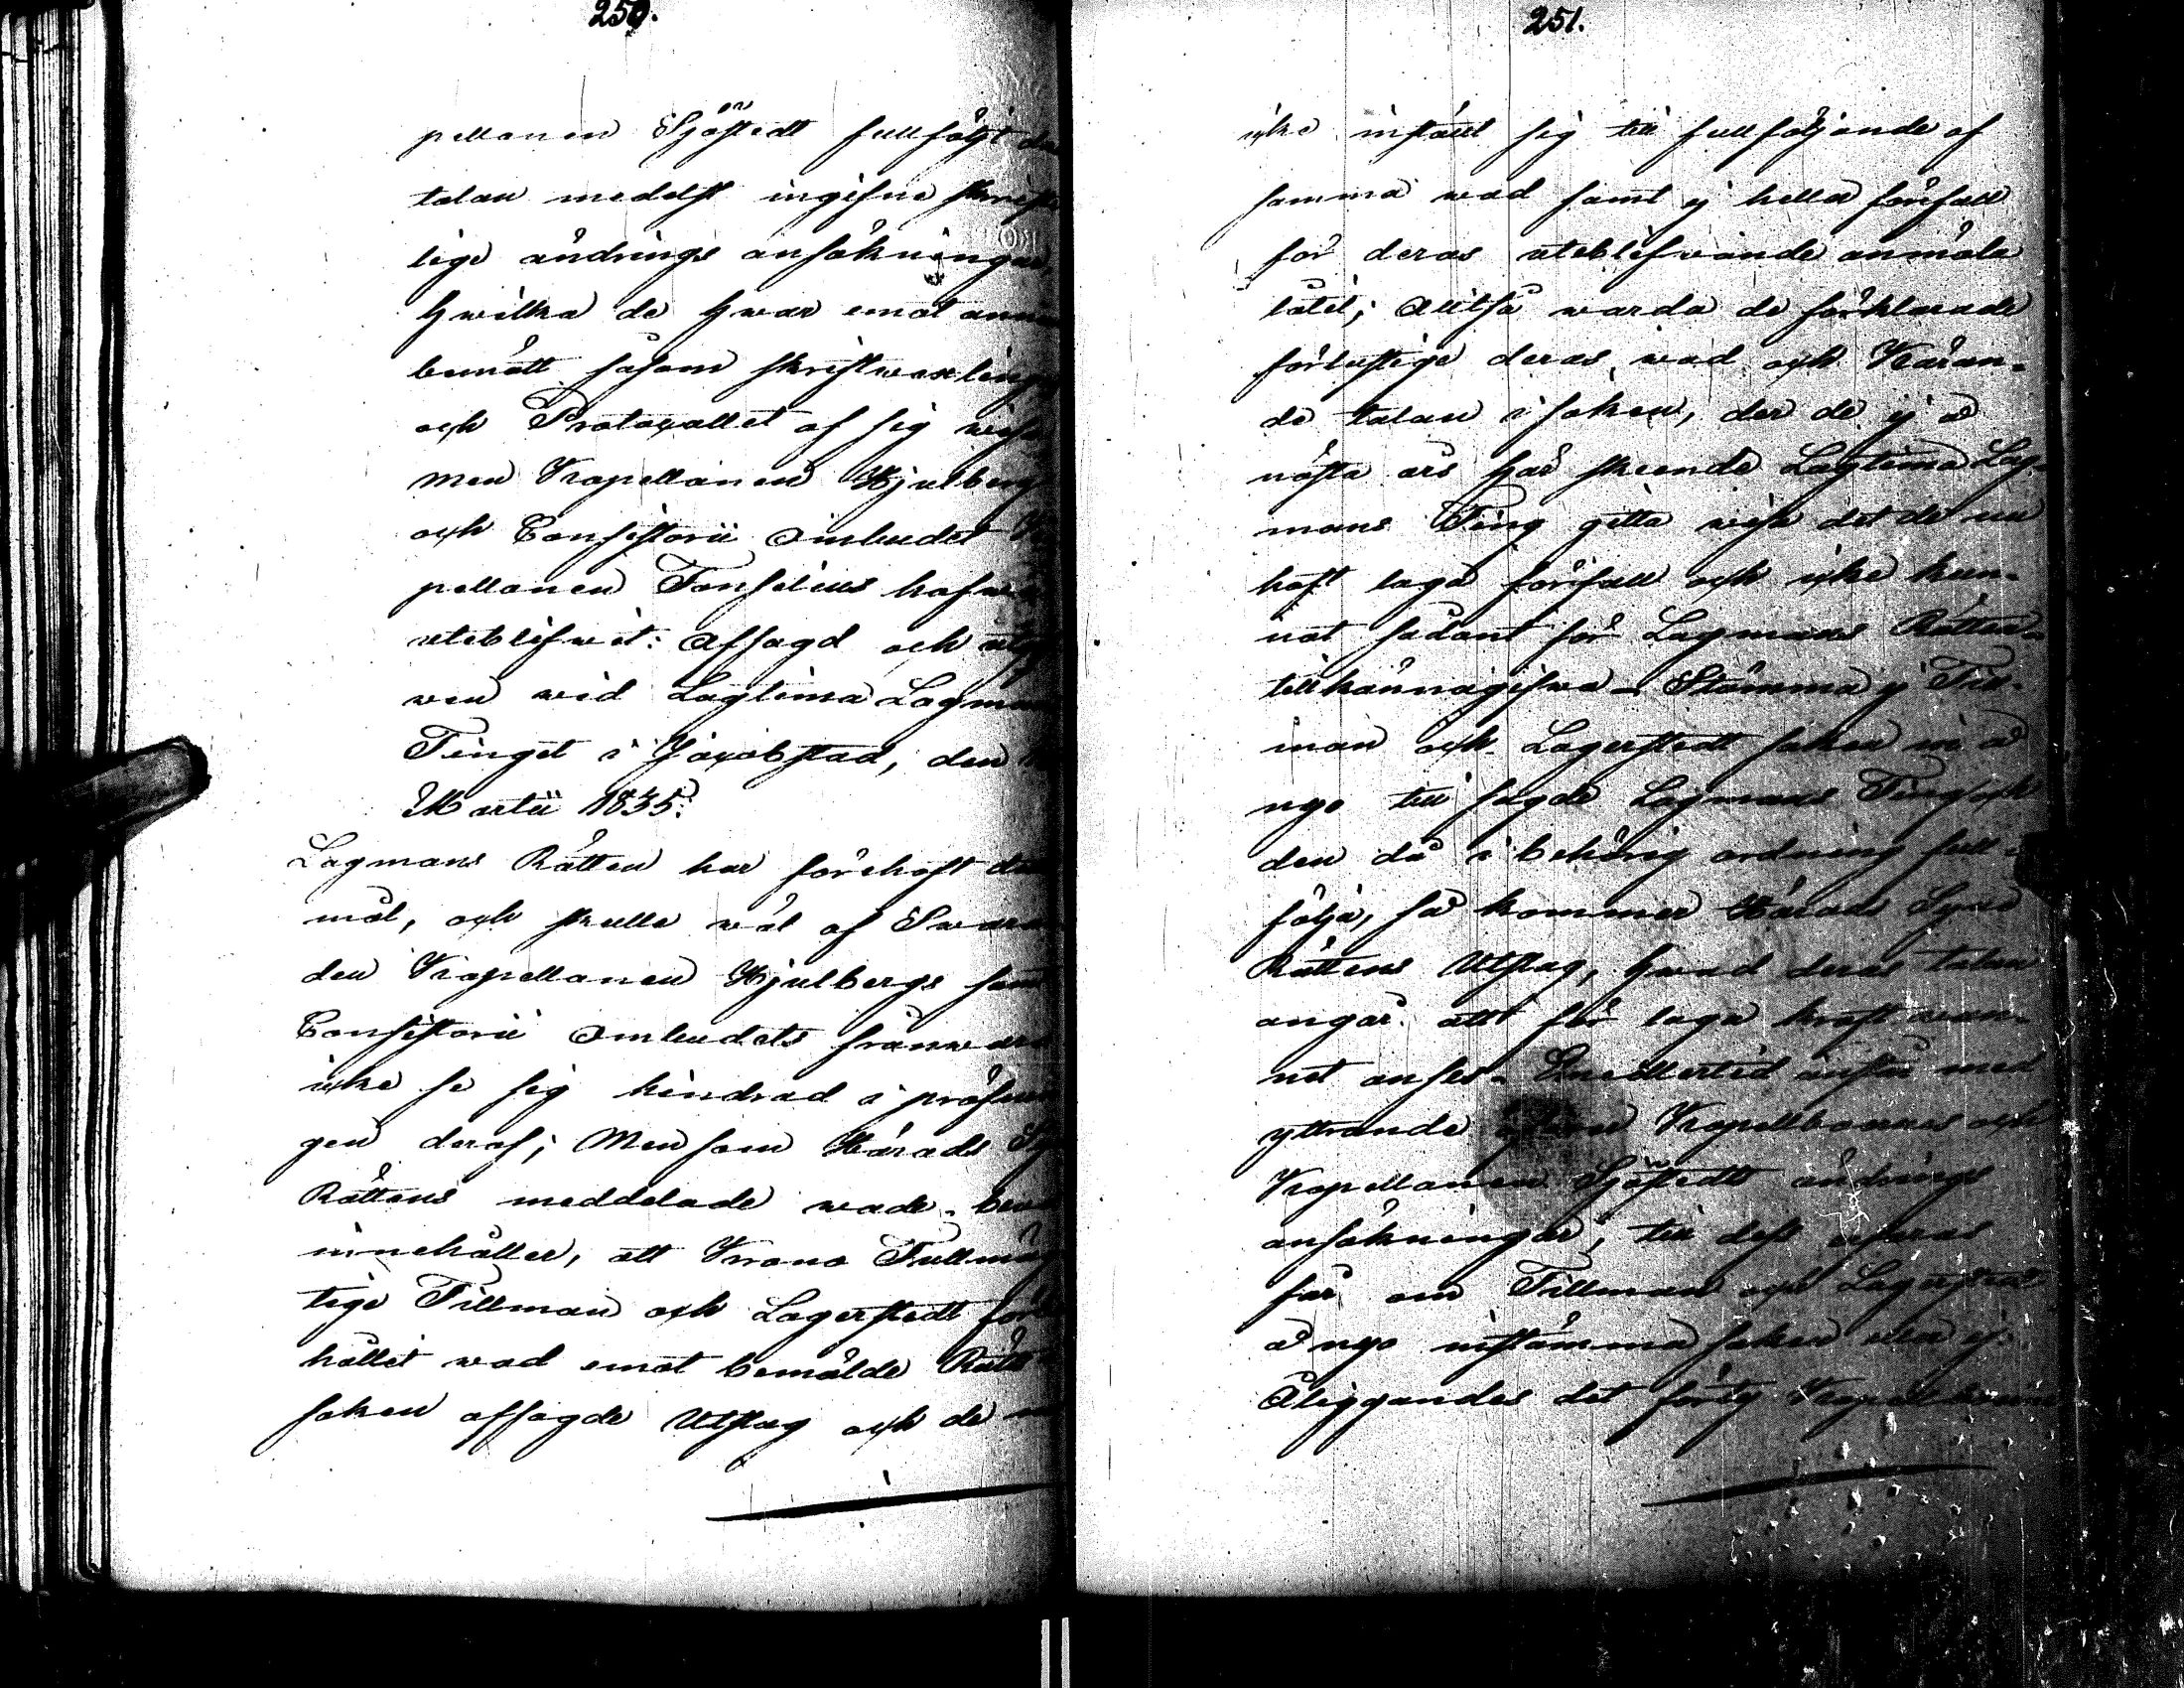 250.
pellanen Sjöstedt fullföljt
talan medelst ingifne
lige ändrings ansökningar,
hwilka de hwar emot
bemött såsom
och Protocollet af sig
men Kapellanen Hjulberg
och Consistorii Ombudet
pellanen Tonselius
uteblifwit: Afsagd och
ven wid Lagtima
Tinget i Jacobstad, den
Martii 1835.
Lagmans Rätten har förehaft
mål, och skulle wäl af
den Kapellanen Hjulbergs
Consistorii Ombudets
icke se sig hindrad i
gen deraf; Men som Härads
Rättens meddelade wade-
innehåller, att Krono
tige Tillman och Lagerstedt
hållit wad emot bemälde
saken afsagde Utslag och de
251.
icke instält sig till fullföljande af
samma wad samt ej heller förfall
för deras uteblifwande anmäla
låtit; Alltså warda de förklarade
förlustige deras wad och Käran-
de talan i saken, der de ej å
nästa års här skeende Lagtima Lag-
mans Ting gitta wisa det de nu
haft laga förfall och icke kun-
nat sådant för Lagmans Rätten
tillkännagifwa. Stämma ej Till-
man och Lagerstedt saken in å
nyo till sagde Lagmans Ting och
den då i behörig ordning full-
följa, så kommer Härads Syne
Rättens Utslag, hwad deras talan
angår att för laga kraft wun-
net anses. Emellertid anstår med
yttrande Kapellboernes och
Kapellanen Sjöstedts ändrings
ansökningar, till dess erfaras
får om Tillman och Lagerstedt
å nyo instämma saken eller ej.
Åliggandes det förty